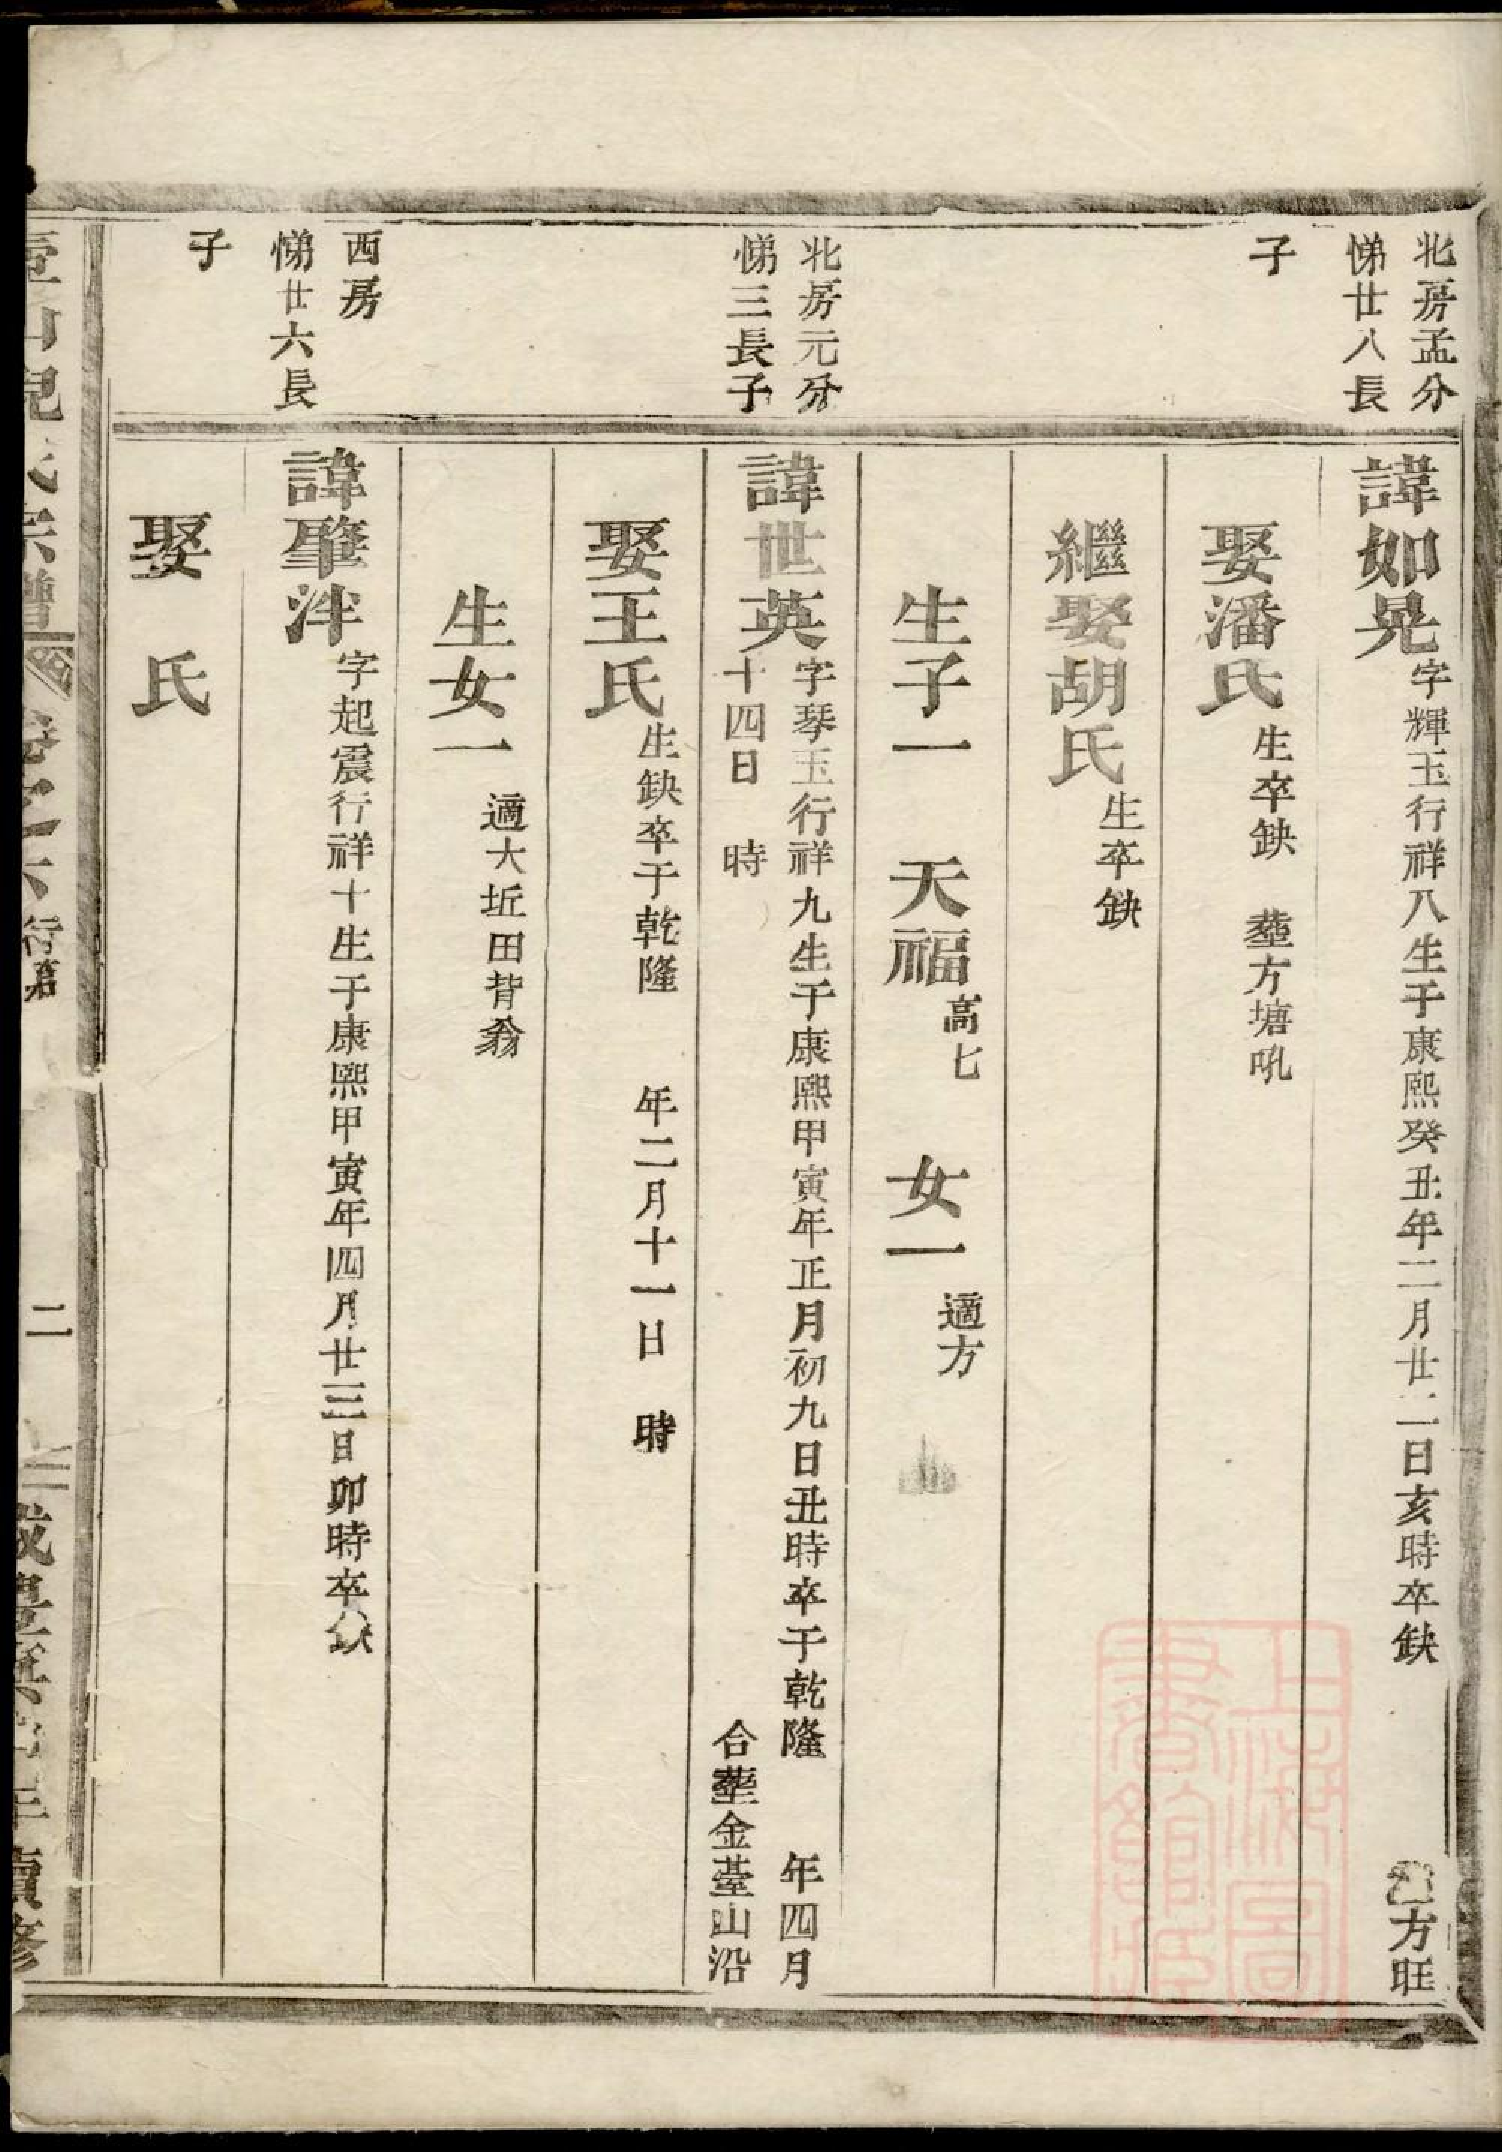 北房孟分
悌廿八長
子
諱如晃字輝玉行祥八生于康熙癸丑年二月廿二日亥時卒缺 塟方旺
娶潘氏生卒缺 塟方塘吼
繼娶胡氏生卒缺
生子一 天福高七 女一適方
北房元分
悌三長子
諱世英字琴玉行祥九生于康熙甲寅年正月初九日丑時卒于乾隆 年四月
十四日 時 合塟金䑓山沿
娶王氏生缺卒于乾隆 年二月十一日 時
生女一 適大坵田背翁
西房
悌廿六長
子
諱肇泮字起震行祥十生于康熙甲寅年四月廿三日卯時卒缺
娶 氏
宗譜 卷之六 行第 二 咸豊 年續修
上海圖
書館藏